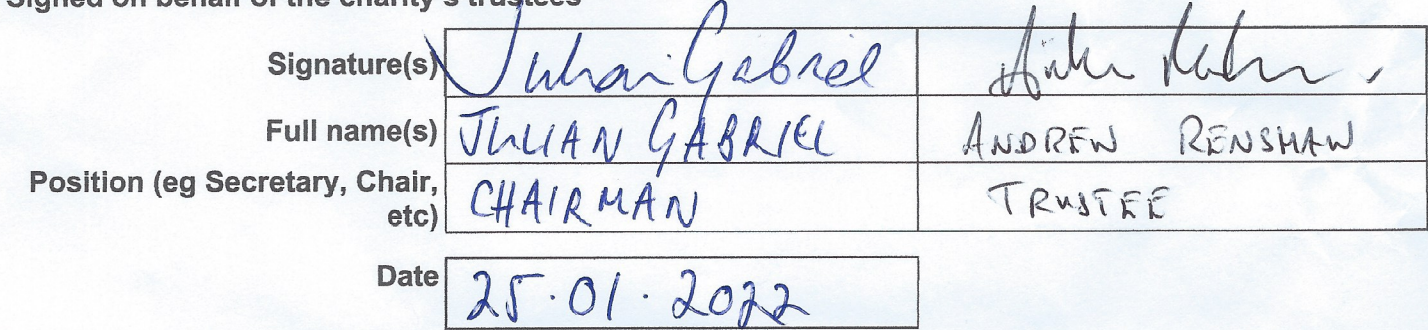 Signed on behalf of the charity's trustees
Signature(s) Julian Gabriel
Full name(s) JULIAN GABRIEL ANDREW RENSHAW
Position (eg Secretary, Chair, etc) CHAIRMAN TRUSTEE
Date 25.01.2022